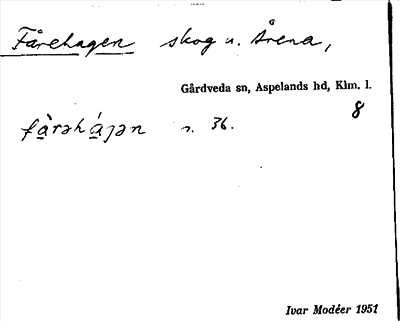 Fårehagen skog u. Årena,
Gårdveda sn, Aspelands hd, Klm. l.
8
fàrəháɡən n. 36.
Ivar Modéer 1951